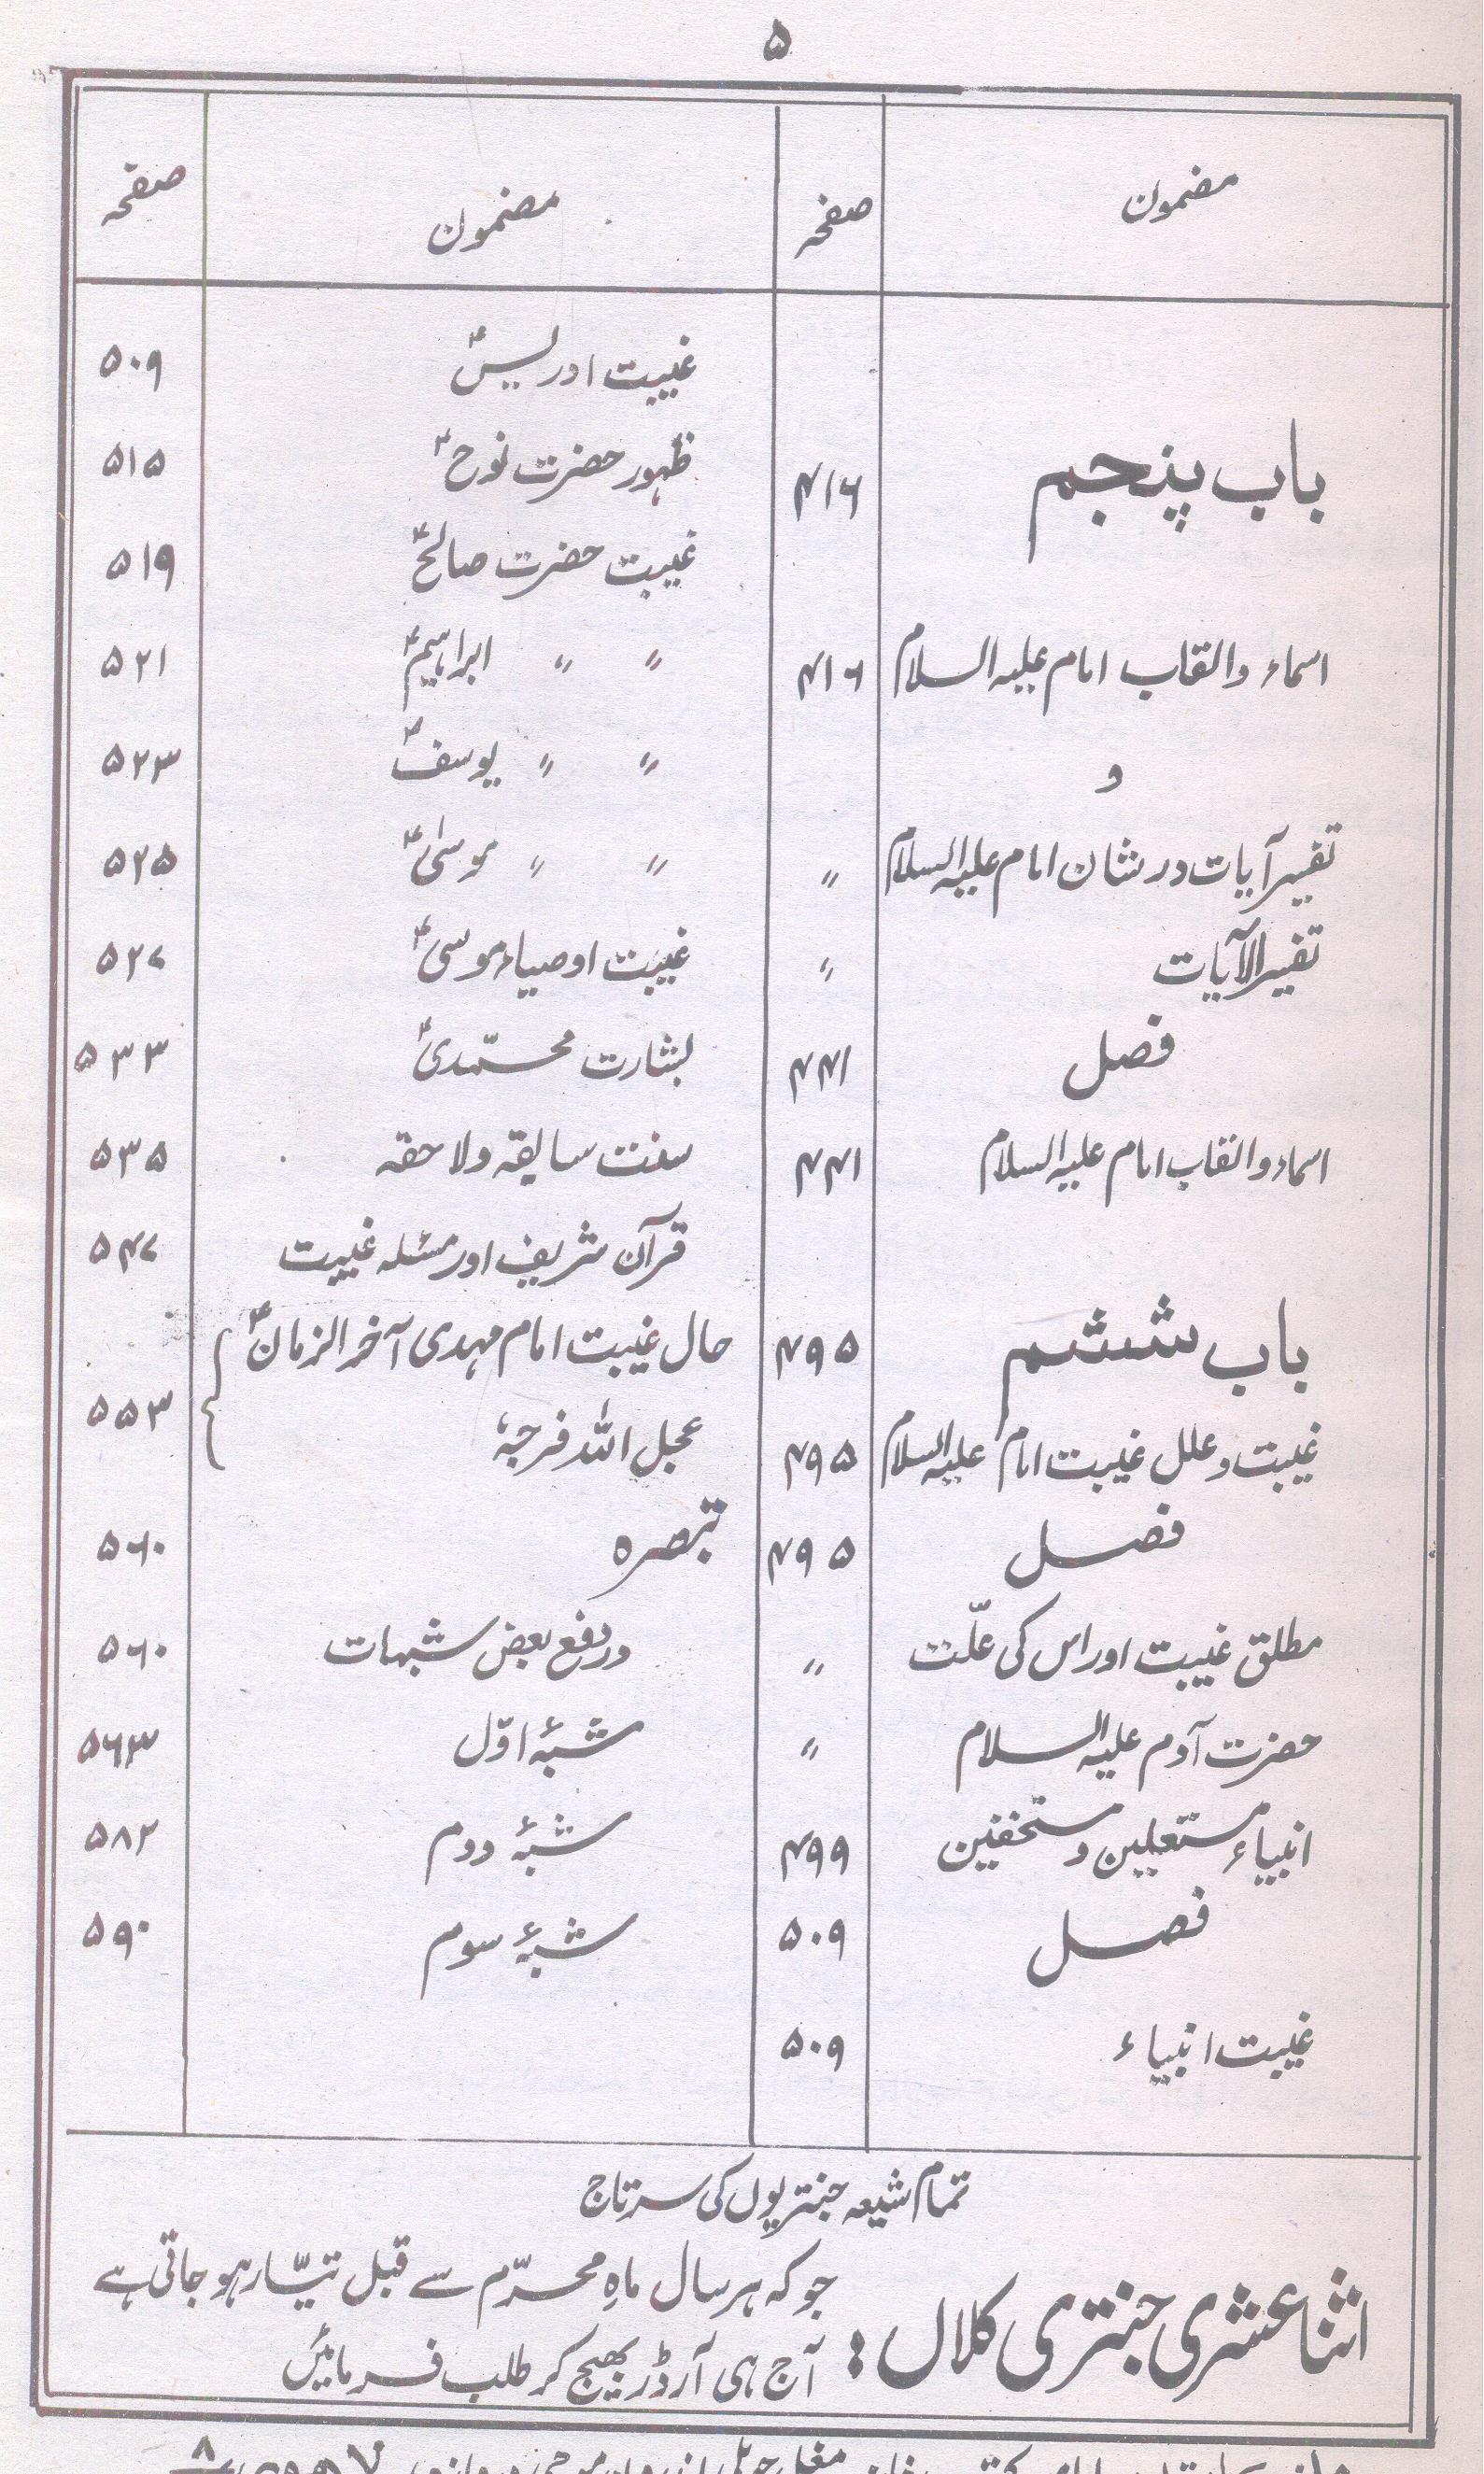 ۵
مضمون صفحہ مضمون صفحہ
باب پنجم ۴۱۶
اسماء والقاب امام علیہ السلام ۴۱۶
و
تفسیر آیات در شان امام علیہ السلام 〃
تفسیر الآیات 〃
فصل ۴۴۱
اسماء والقاب امام علیہ السلام ۴۴۱
باب ششم ۴۹۵
غیبت و علل غیبت امام علیہ السلام ۴۹۵
فصل ۴۹۵
مطلق غیبت اور اس کی علّت 〃
حضرت آدم علیہ السلام 〃
انبیاء مستعلین و مستخفین ۴۹۹
فصل ۵۰۹
غیبت انبیاء ۵۰۹
غیبت ادریسؑ ۵۰۹
ظہور حضرت نوحؑ ۵۱۵
غیبت حضرت صالحؑ ۵۱۹
〃 〃 ابراہیمؑ ۵۲۱
〃 〃 یوسفؑ ۵۲۳
〃 〃 موسیٰؑ ۵۲۵
غیبت اوصیاء موسیؑ ۵۲۷
بشارت محمّدیؐ ۵۳۳
سنت سابقہ ولاحقہ ۵۳۵
قرآن شریف اور مسئلہ غیبت ۵۴۷
حال غیبت امام مہدی آخر الزمانؑ
عجل اللہ فرجہٗ ۵۵۳
تبصرہ ۵۶۰
در رفع بعض شبہات ۵۶۰
شبۂ اوّل ۵۶۳
شبۂ دوم ۵۸۲
شبۂ سوم ۵۹۰
تمام شیعہ جنتریوں کی سرتاج
اثنا عشری جنتری کلاں :
جو کہ ہر سال ماہِ محرّم سے قبل تیّار ہو جاتی ہے
آج ہی آرڈر بھیج کر طلب فرمائیں